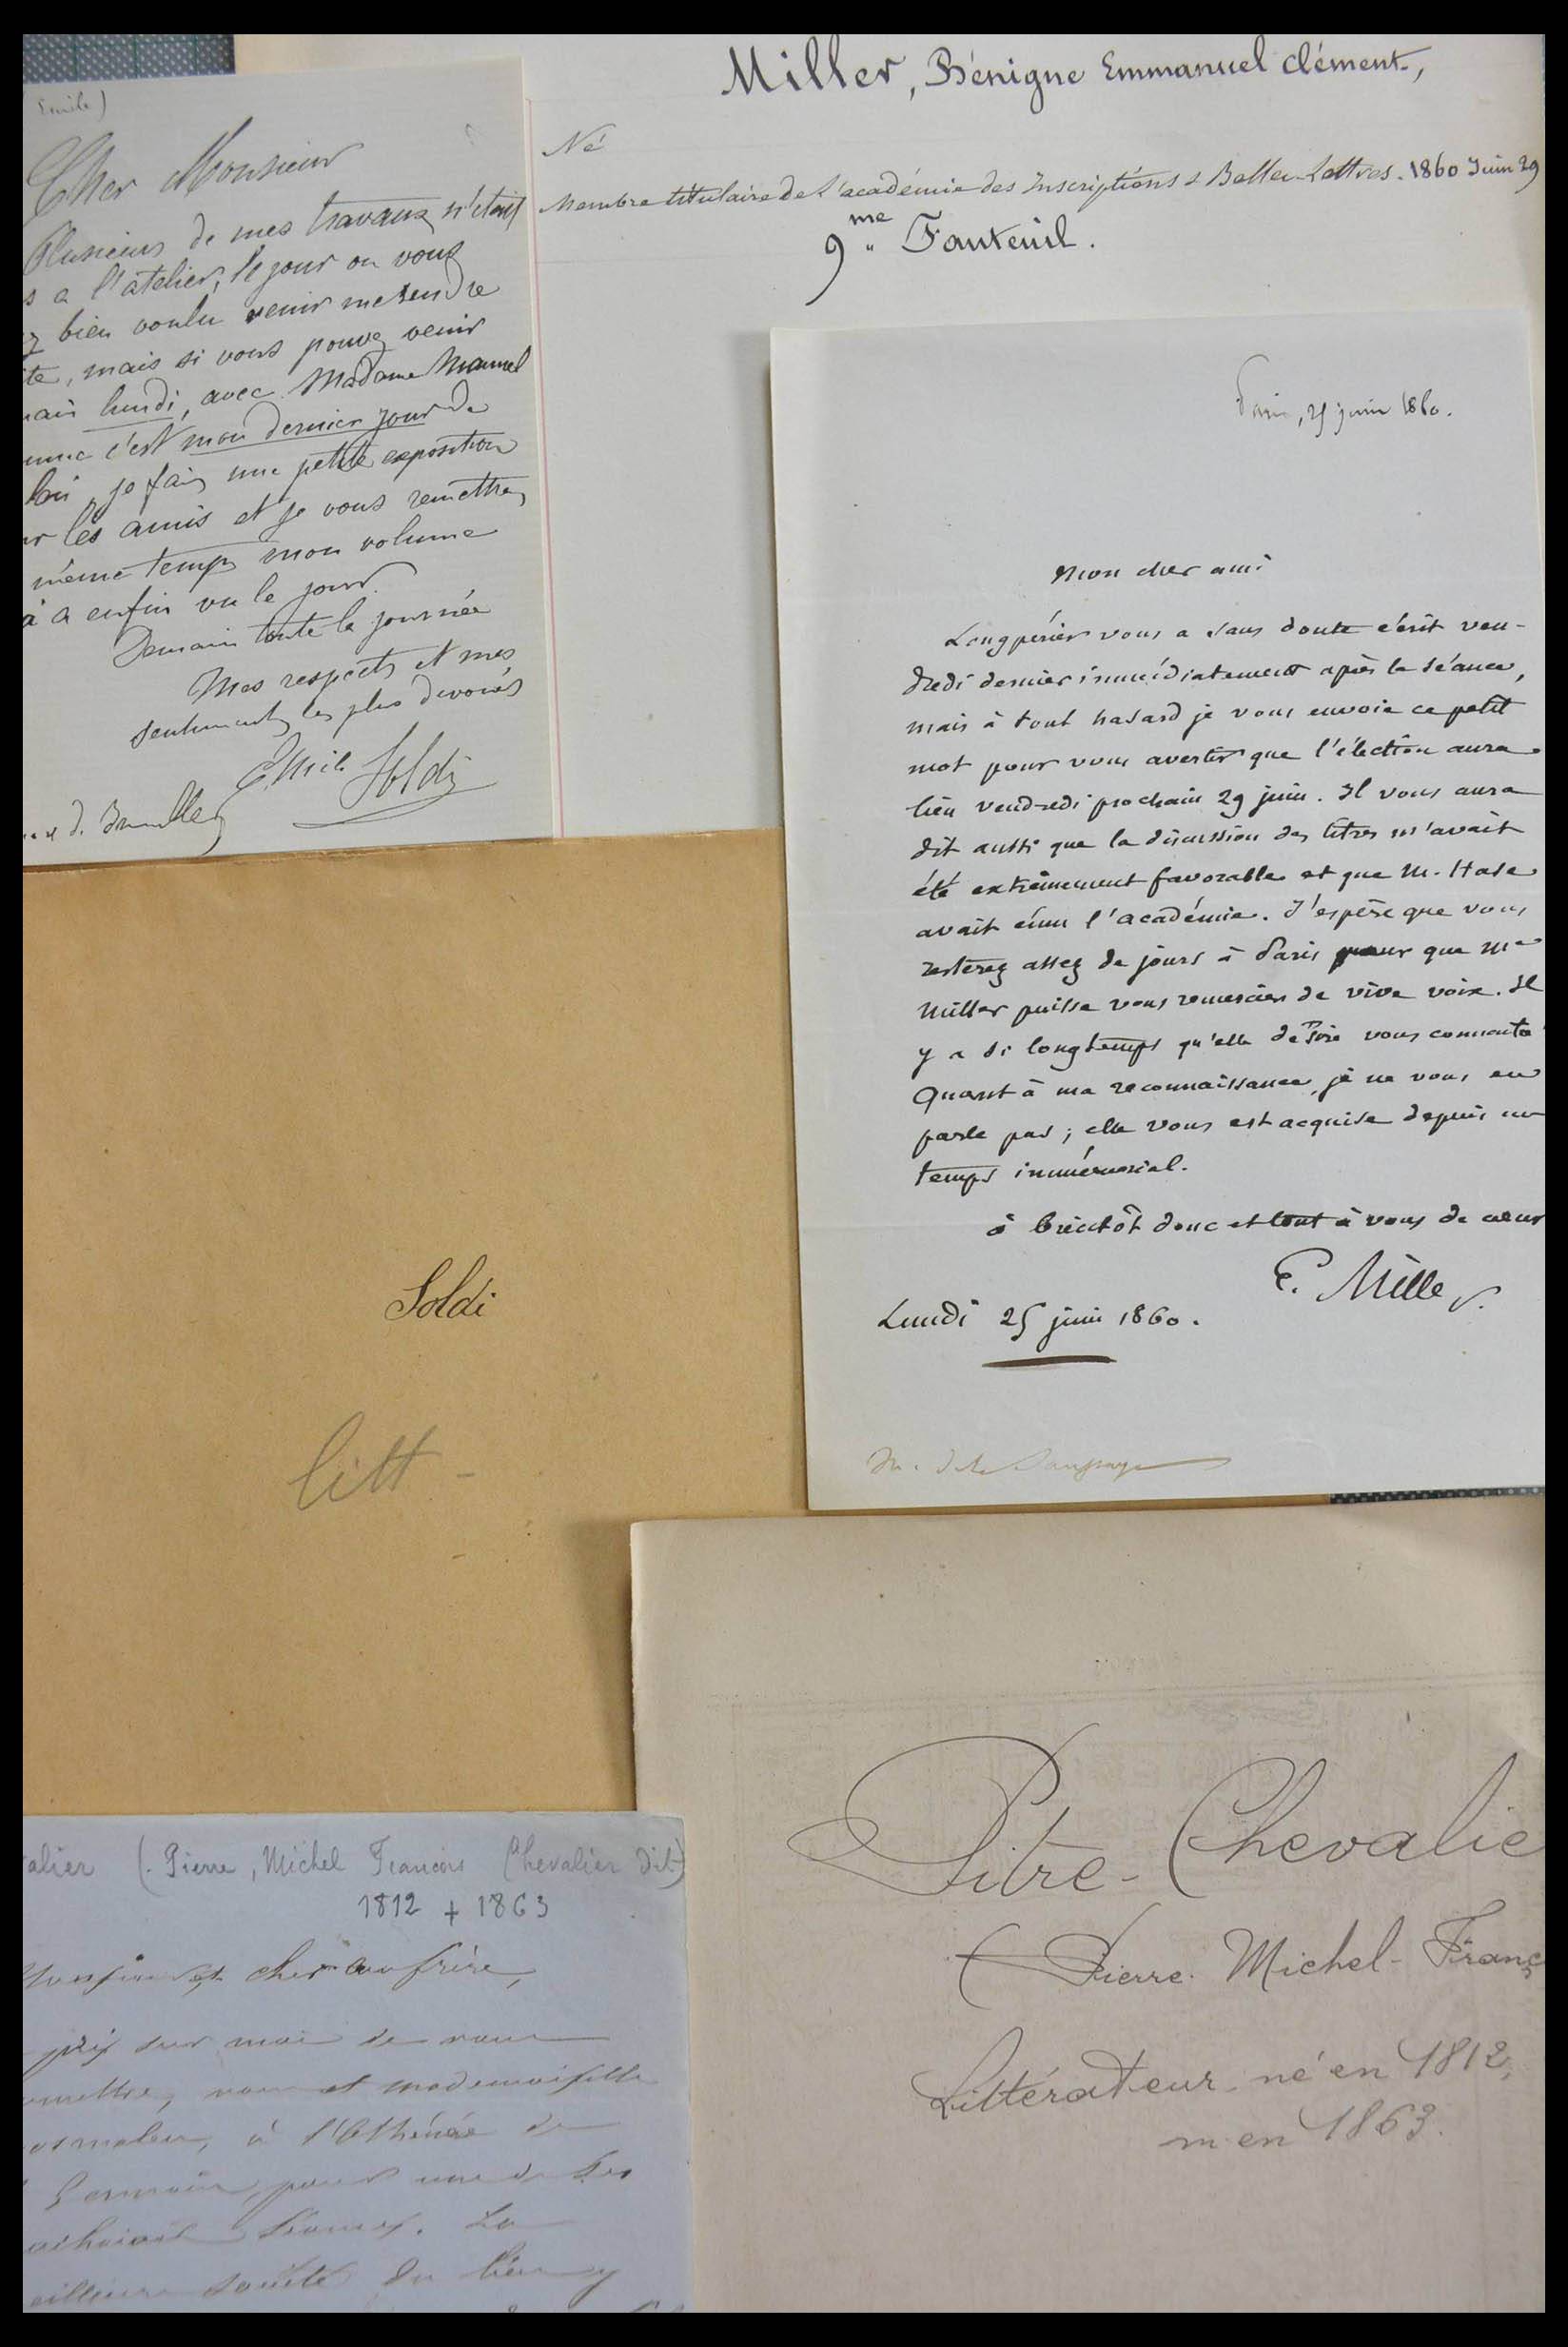 Emile)
Cher Monsieur
Plusieurs de mes travaux n'étaient
s a l'atelier, le jour ou vous
ez bien voulu venir me rendre
te, mais si vous pouvez venir
main lundi, avec Madame Manuel
c'est mon dernier jour de
je fais une petite exposition
r les amis et je vous remettrai
même temps mon volume
a enfin vu le jour.
Demain toute la journée
Mes respects et mes
sentiments les plus dévoués
Emile Soldi
Miller, Bénigne Emmanuel Clément,
Né
Membre titulaire de l'académie des Inscriptions & Belles-Lettres. 1860 Juin 29
9me Fauteuil.
Paris, 25 juin 1860.
Mon cher ami
Longpérier vous a sans doute écrit ven-
dredi dernier immédiatement après la séance,
mais à tout hasard je vous envoie ce petit
mot pour vous avertir que l'élection aura
lieu vendredi prochain 29 juin. Il vous aura
dit aussi que la discussion des titres m'avait
été extrêmement favorable et que M. Hase
avait ému l'académie. J'espère que vous
resterez assez de jours à Paris pour que Me
Miller puisse vous remercier de vive voix. Il
y a si longtemps qu'elle désire vous connaître
Quant à ma reconnaissance, je ne vous en
parle pas; elle vous est acquise depuis un
temps immémorial.
à bientôt donc et tout à vous de cœur
E. Miller.
Lundi 25 juin 1860.
M. de la Saussaye
Soldi
litt-
alier (Pierre, Michel François Chevalier dit)
1812 + 1863
Monsieur et cher confrère,
pris sur moi de vous
mettre, vous et mademoiselle
à l'Athénée de
Germain, pour une de ses
La
société du lieu y
Pitre-Chevalie
(Pierre. Michel-Franç
Littérateur, né en 1812,
m. en 1863.